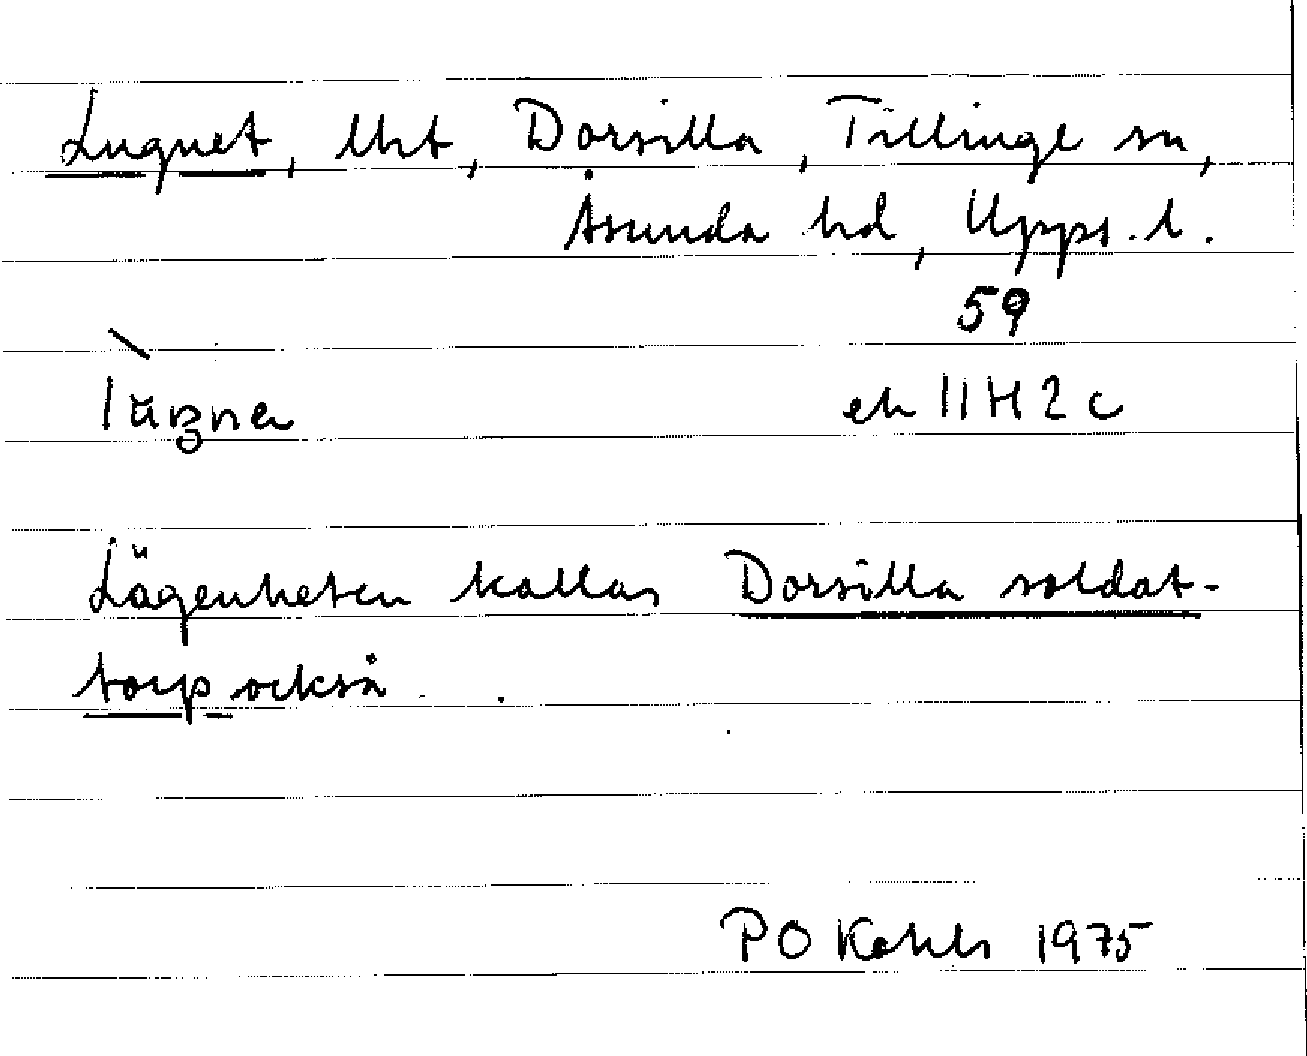 Lugnet, lht, Dorsilla, Tillinge sn,
Åsunda hd, Upps. l.
59
ek 11H2c
Lägenheten kallas Dorsilla soldat-
torp också.
PO Kahls 1975